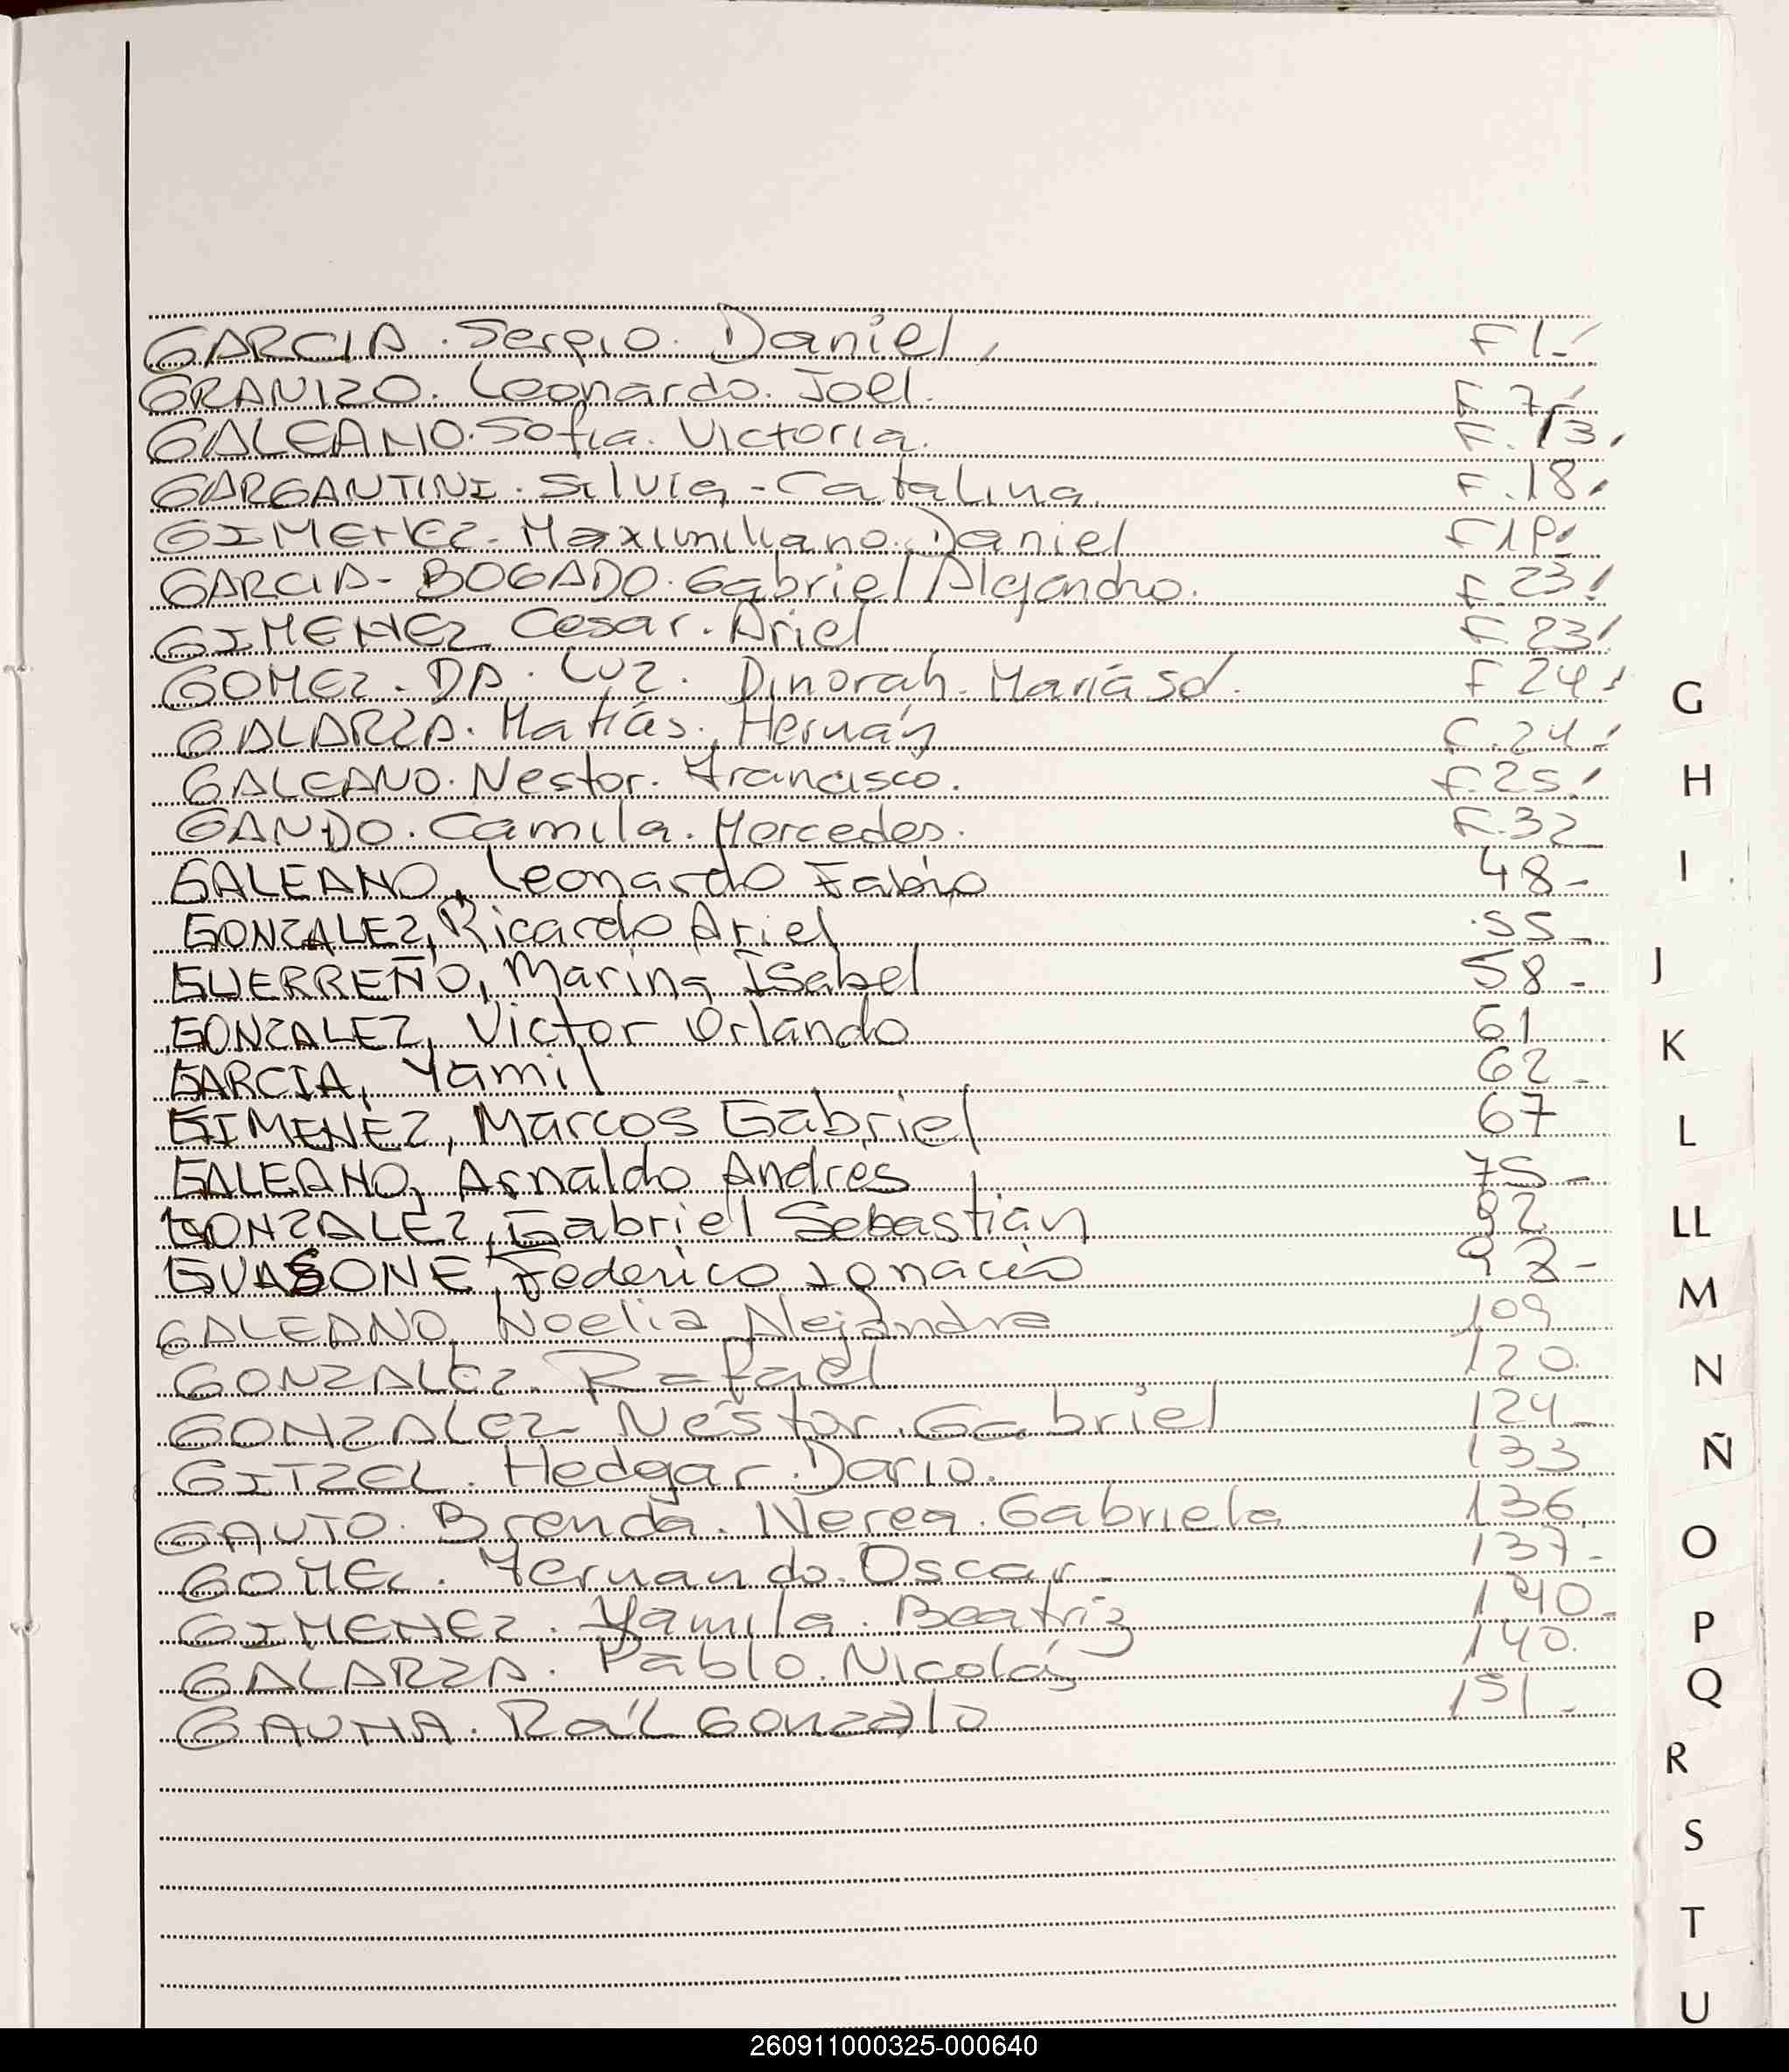 GARCIA. Sergio. Daniel, F 1.-
GRANIZO. Leonardo. Joel. F. 7.
GALEANO. Sofia. Victoria. F. 13.
GARGANTINI. Silvia - Catalina. F. 18.
GIMENEZ - Maximiliano. Daniel F 19.
GARCIA - BOGADO. Gabriel Alejandro. F. 23.
GIMENEZ Cesar. Ariel F. 23.
GOMEZ - DA. LUZ. Dinorah. Maríasol. F 24.
GALARZA. Matías. Hernán F. 24.
GALEANO. Nestor. Francisco. F. 25.
GANDO. Camila. Mercedes. F. 32
GALEANO, Leonardo Fabio 48-
GONZALEZ, Ricardo Ariel 55-
GUERREÑO, Marina Isabel 58-
GONZALEZ, Victor Orlando 61
GARCIA, Yamil 62-
GIMENEZ, Marcos Gabriel 67
GALEANO, Arnaldo Andres 75-
GONZALEZ, Gabriel Sebastián 92
GUASONE, Federico Ignacio
GALEANO Noelia Alejandra 109
GONZALEZ. Rafael 120.
GONZALEZ Nestor. Gabriel 124-
GITZEL. Hedgar. Dario. 133
GAUTO. Brenda. Nerea. Gabriela 136
GOMEZ. Fernando. Oscar. 137-
GIMENEZ. Yamila. Beatriz 140-
GALARZA. Pablo. Nicolás 140.
GAUNA. Raúl Gonzalo 151-
G
H
I
J
K
L
LL
M
N
Ñ
O
P
Q
R
S
T
U
260911000325-000640